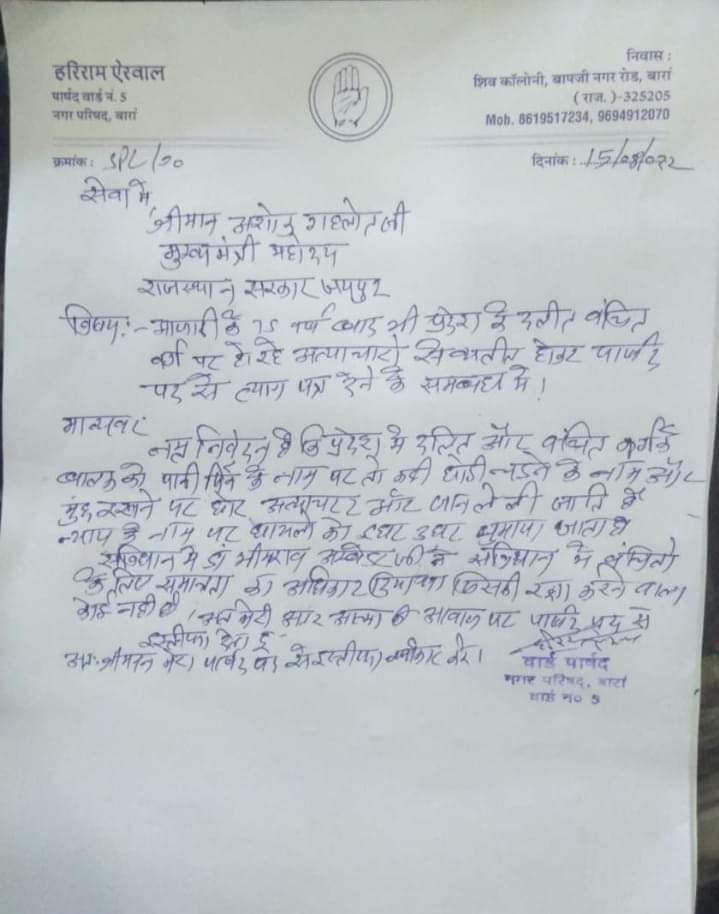 हरिराम ऐरवाल
पार्षद वार्ड नं. 5
नगर परिषद, बारां
निवास :
शिव कॉलोनी, बापजी नगर रोड, बारां
( राज. )-325205
Mob. 8619517234, 9694912070
क्रमांक : SPL/20
दिनांक : 15/08/022
सेवा में
श्रीमान अशोक गहलोत जी
मुख्यमंत्री महोदय
राजस्थान सरकार जयपुर
विषय :- आजादी के 75 वर्ष बाद भी प्रदेश के दलीत वंचित
वर्ग पर हो रहे अत्याचारो से व्यतीत होकर पार्षद
पद से त्याग पत्र देने के सम्बन्ध मे।
मान्यवर
नम्र निवेदन है कि प्रदेश मे दलित और वंचित वर्ग के
बालक को पानी पिने के नाम पर तो कही घोडी चडने के नाम और
मुंछ रखने पर घोर अत्याचार और जान लेली जाति है
न्याय के नाम पर मामलो को इधर उधर घुमाया जाता है
संविधान मे डॉ भीमराव अम्बेडकर जी ने संविधान मे वंचितो
के लिए समानता का अधिकार दिया था जिसकी रक्षा करने वाला
कोई नही है, अत मेरी अंतर आत्मा की आवाज पर पार्षद पद से
इस्तीफा देता हूं
अतः श्रीमान मेरा पार्षद पद से इस्तीफा स्वीकार करे।
वार्ड पार्षद
नगर परिषद, बारां
वार्ड नं० 5